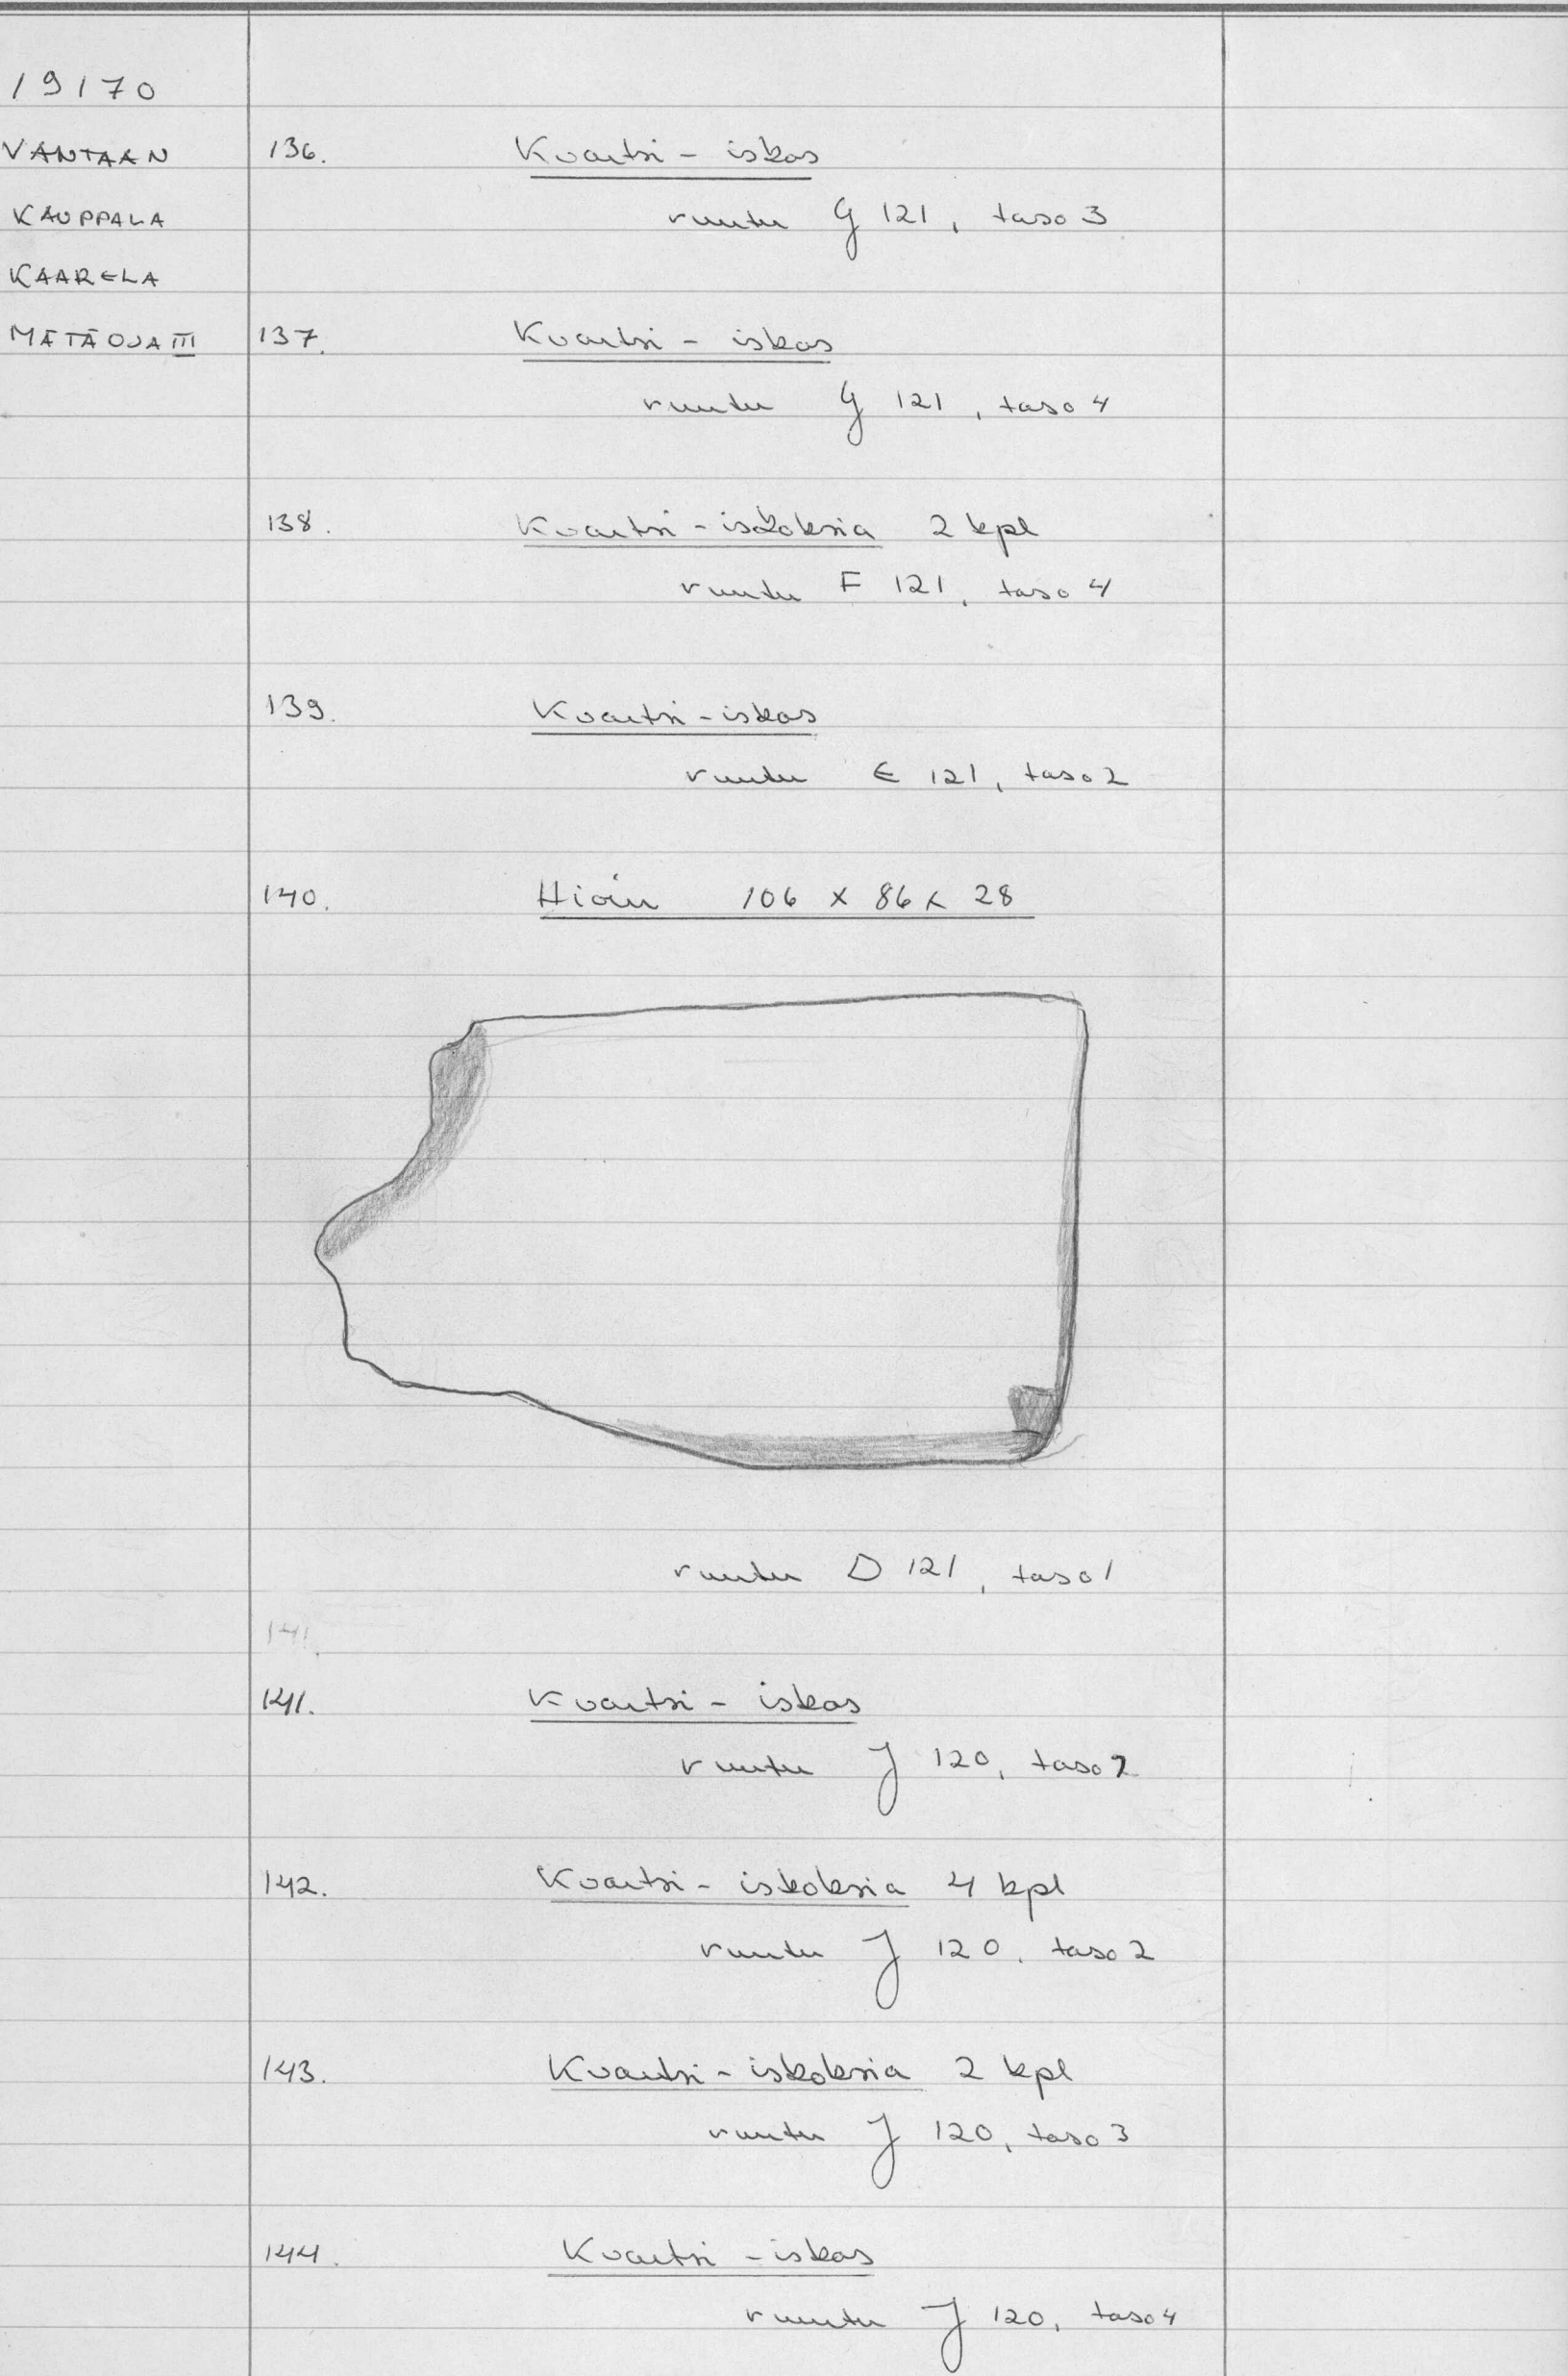 19170
VANTAAN
KAUPPALA
KAARELA
MÄTÄOJA III
136. Kvartsi - iskos
ruutu G 121, taso 3
137. Kvartsi - iskos
ruutu G 121, taso 4
138. Kvartsi - iskoksia 2 kpl
ruutu F 121, taso 4
139. Kvartsi - iskos
ruutu E 121, taso 2
140. Hioin 106 x 86 x 28
ruutu D 121, taso 1
141.
141. Kvartsi - iskos
ruutu J 120, taso 2
142. Kvartsi - iskoksia 4 kpl
ruutu J 120, taso 2
143. Kvartsi - iskoksia 2 kpl
ruutu J 120, taso 3
144. Kvartsi - iskos
ruutu J 120, taso 4